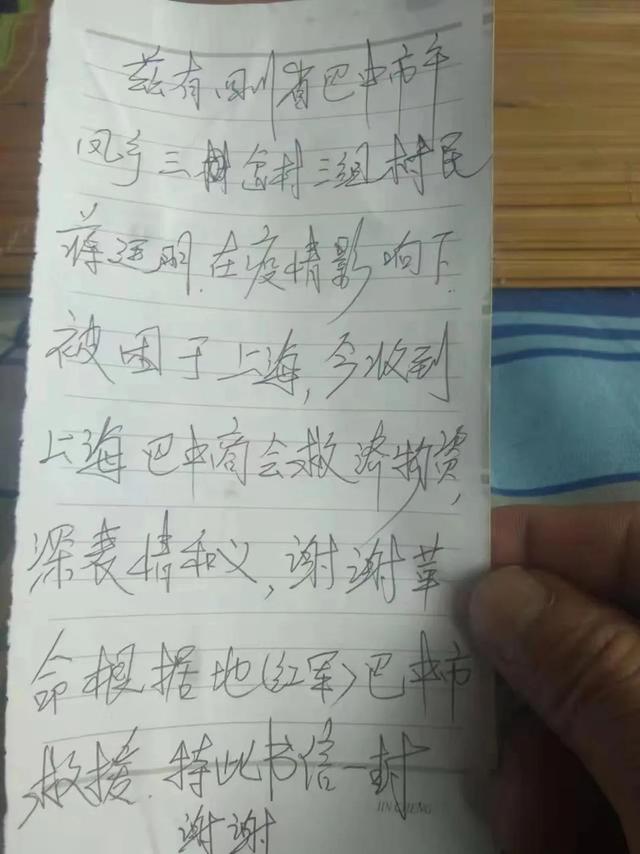 兹有四川省巴中市平
凤乡三树 村三组村民
蒋运明.在疫情影响下.
被困于上海,今收到
上海巴中商会救济物资,
深表情和义,谢谢革
命根据地(红军)巴中市
救援.特此书信一封
JIN CHENG
谢谢